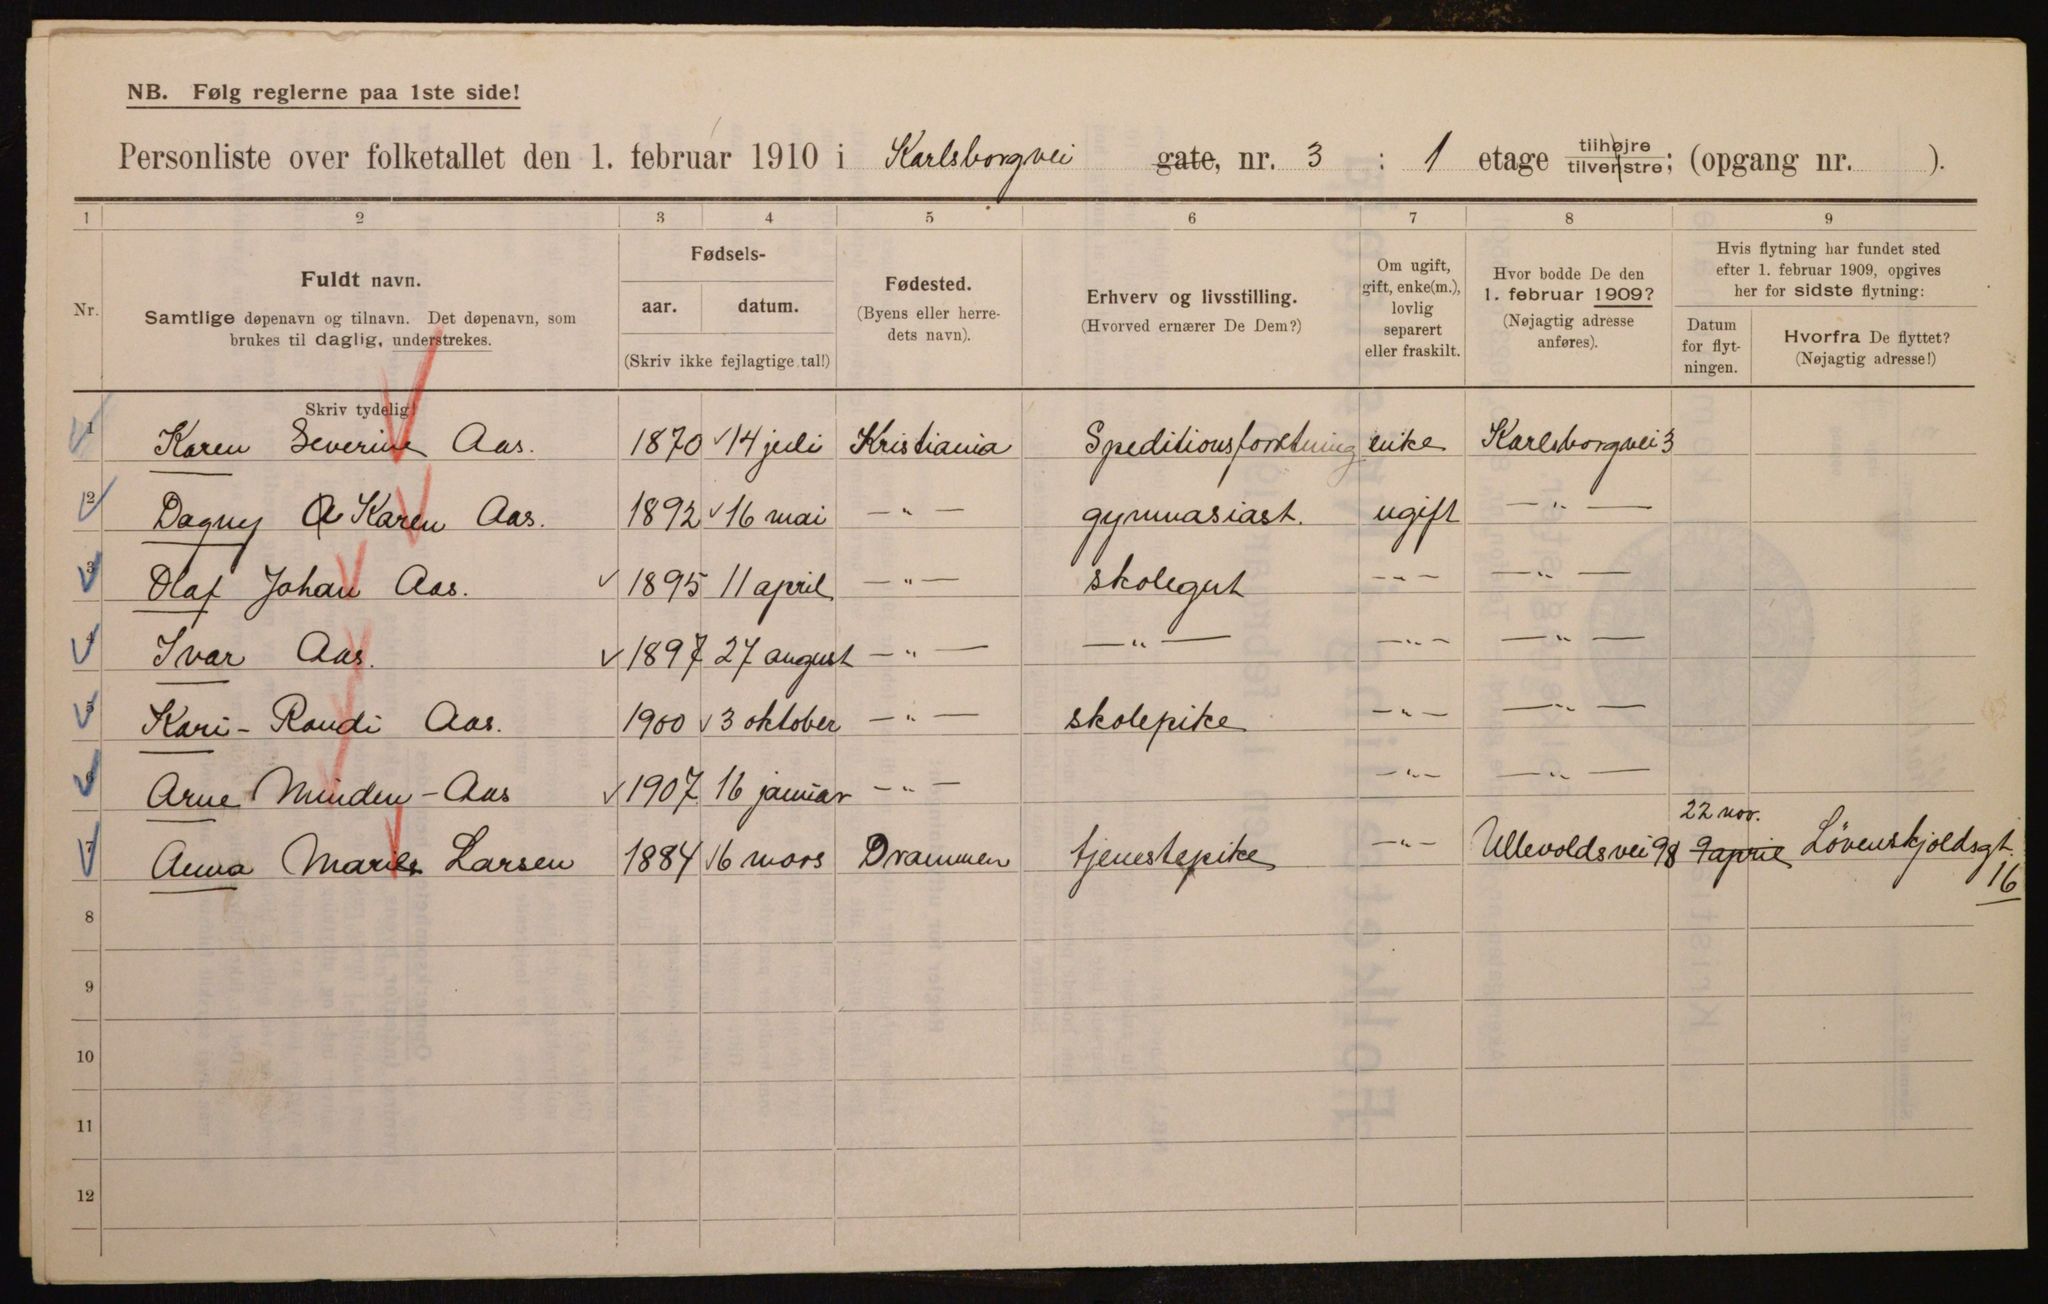 NB. Følg reglerne paa 1ste side!
Personliste over folketallet den 1. februar 1910 i Karlsborgvei gate, nr. 3 : 1 etage tilhøjre tilvenstre; (opgang nr. ).
1 2 3 4 5 6 7 8 9
Nr.
Fuldt navn.
Samtlige døpenavn og tilnavn. Det døpenavn, som
brukes til daglig, understrekes.
Fødsels-
aar. datum.
(Skriv ikke fejlagtige tal!)
Fødested.
(Byens eller herre-
dets navn).
Erhverv og livsstilling.
(Hvorved ernærer De Dem?)
Om ugift,
gift, enke(m.),
lovlig
separert
eller fraskilt.
Hvor bodde De den
1. februar 1909?
(Nøjagtig adresse
anføres).
Hvis flytning har fundet sted
efter 1. februar 1909, opgives
her for sidste flytning:
Datum
for flyt-
ningen.
Hvorfra De flyttet?
(Nøjagtig adresse!)
Skriv tydelig!
1 Karen Severine Aas. 1870 14 juli Kristiania Speditionsforretning enke Karlsborgvei 3
2 Dagny Karen Aas. 1892 16 mai — " — gymnasiast. ugift — " —
3 Olaf Johan Aas. 1895 11 april — " — skolegut — " — — " —
4 Ivar Aas. 1897 27 august — " — — " — — " — — " —
5 Kari - Randi Aas. 1900 3 oktober — " — skolepike — " — — " —
6 Arne Minden - Aas 1907 16 januar — " — — " — — " —
22 nov.
7 Anna Larsen 1884 6 mars Drammen tjenestepike — " — Ullevoldsvei 98 9 april Løvenskjoldsgt.
16
8
9
10
11
12